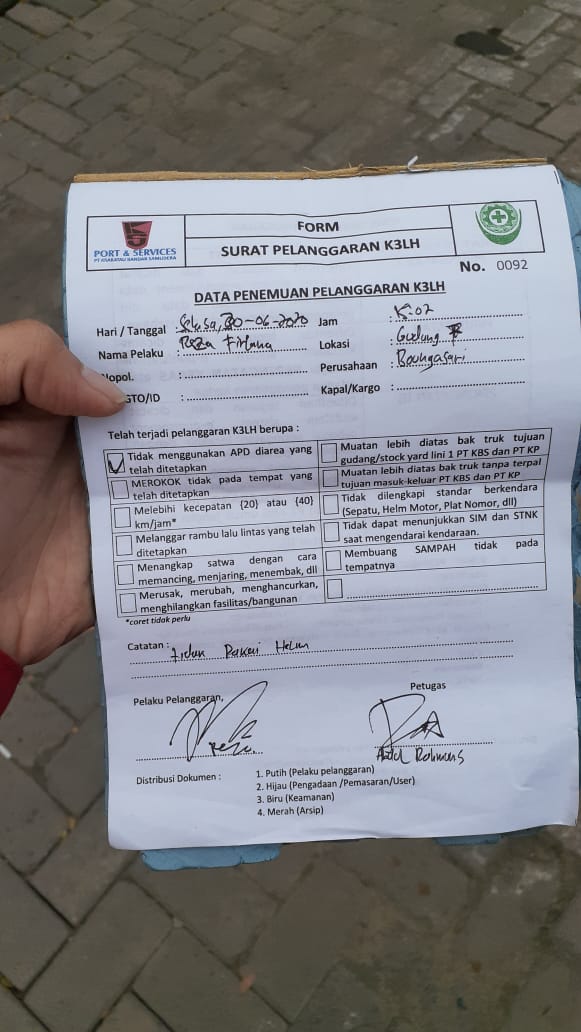 PORT & SERVICES
PT KRAKATAU BANDAR SAMUDERA
FORM
SURAT PELANGGARAN K3LH
No. 0092
DATA PENEMUAN PELANGGARAN K3LH
Hari / Tanggal : Selasa, 30-06-2020 Jam :
Nama Pelaku : Reza Lokasi : Gudang
Nopol. : Perusahaan :
GTO/ID : Kapal/Kargo :
Telah terjadi pelanggaran K3LH berupa :
Tidak menggunakan APD diarea yang telah ditetapkan
Muatan lebih diatas bak truk tujuan gudang/stock yard lini 1 PT KBS dan PT KP
MEROKOK tidak pada tempat yang telah ditetapkan
Muatan lebih diatas bak truk tanpa terpal tujuan masuk-keluar PT KBS dan PT KP
Melebihi kecepatan {20} atau {40} km/jam*
Tidak dilengkapi standar berkendara (Sepatu, Helm Motor, Plat Nomor, dll)
Melanggar rambu lalu lintas yang telah ditetapkan
Tidak dapat menunjukkan SIM dan STNK saat mengendarai kendaraan.
Menangkap satwa dengan cara memancing, menjaring, menembak, dll
Membuang SAMPAH tidak pada tempatnya
Merusak, merubah, menghancurkan, menghilangkan fasilitas/bangunan
*coret tidak perlu
Catatan : Helm
Pelaku Pelanggaran, Petugas
Distribusi Dokumen : 1. Putih (Pelaku pelanggaran)
2. Hijau (Pengadaan /Pemasaran/User)
3. Biru (Keamanan)
4. Merah (Arsip)